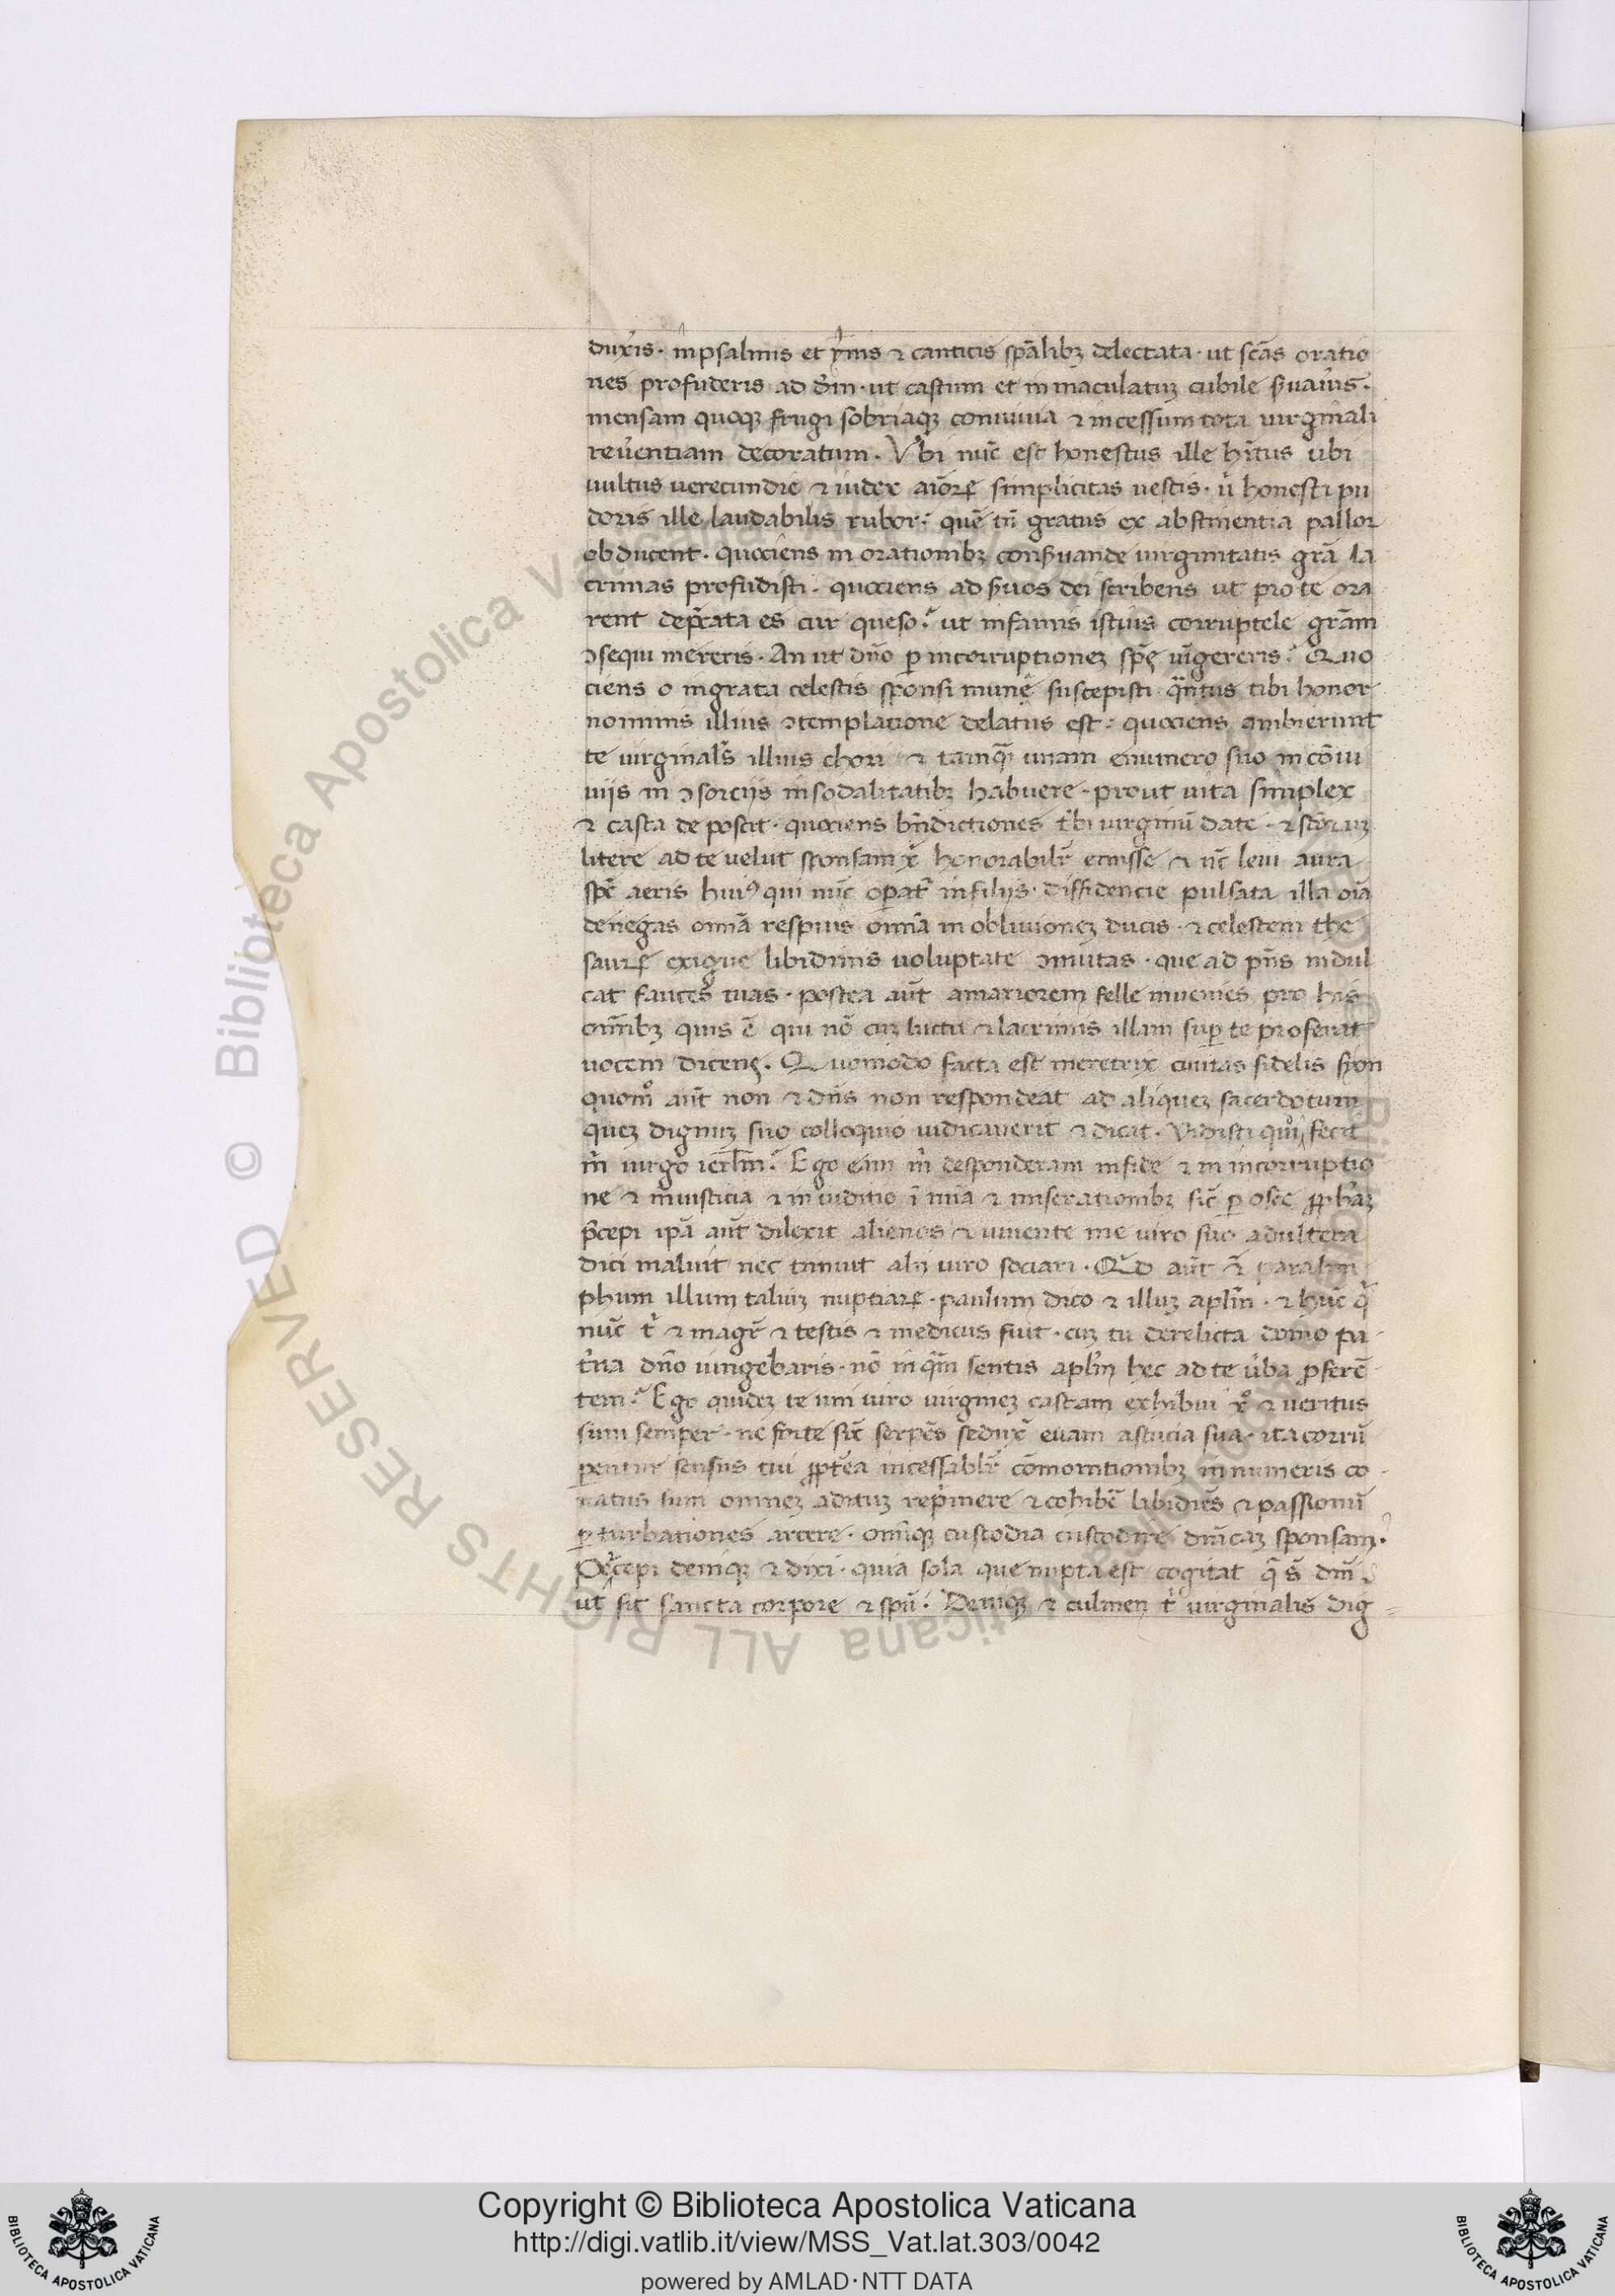 duxĩs · in psalmis et ymis ⁊ canticis sp̃alibꝫ delectata · ut sc̃as oratio
nes profuderis ad dñm · ut castum et in maculatuꝫ cubile s̃uaũis ·
mensam quoqꝫ frugi sobriaqꝫ conuiuia ⁊ incessum tota uirginali
reũentiam decoratum . Vbi nũc est honestus ille hĩtus ubi
uultus uerecundie ⁊ iudex aĩoꝝ simplicitas uestis · ũ honesti pu
doris ille laudabilis rubor · quẽ tñ gratus ex abstinentia pallor
obducent · quociens in orationibꝫ cons̃uande uirginitatis gr̃a la
crimas profudisti · quociens ad s̃uos dei scribens ut pro te ora
rent dep̃cata es cur queso ut infamis istius corruptele gr̃am
ↄsequi mereris · An ut dño ꝑ incorruptioneꝫ iũgereris Quo
ciens o ingrata celestis sponsi munẽ suscepisti q̃ntus tibi honor
nominis illius ↄtemplatione delatus est · quociens ambierunt
te uirginal̃s illius chori ⁊ tamq̃ unam enumero suo in cõui
uijs in ↄsorcijs in sodalitatibꝫ habuere · prout uita simplex
⁊ casta de poscit · quociens bñdictiones t̃bi uirginũ date ·
litere ad te uelut sponsam xp̃i honorabilr̃ emisse ⁊ nc̃ leui aura
sp̃c aeris huiꝰ qui nũc oꝑat̃ in filijs · diffidencie pulsata illa oĩa
denegas omã respuis omĩa in obliuioneꝫ ducis · ⁊ celestem the
sauꝝ exigue libidinis uoluptate ↄmutas · que ad p̃ns indul
cat fauces tuas · postea aũt amariorem felle inuenies pro his
omĩbꝫ quis ẽ qui nõ cuꝫ luctu ⁊ lacrimis illam suꝑ te proferat
uocem dicens . Quomodo facta est meretrix ciuitas fidelis syon
quom̊ aũt non ⁊ dñs non respondeat ad aliqueꝫ sacerdotum
queꝫ dignuꝫ suo colloquio iudicauerit ⁊ dicat . Vidisti fecit
m̃ uirgo ierl̃m Ego eñi m̃ desponderam infide ⁊ in incorruptio
ne ⁊ in iusticia ⁊ in iuditio ĩ mĩa ⁊ miserationibꝫ sic̃ ꝑ osee
p̃cepi ip̃a aũt dilexit alienos ⁊ uiuente me uiro suo adultera
dici maluit nec timuit alij uiro sociari · Qd̃ aũt ⁊ paranim
phum illum taliuꝫ nuptiaꝝ · paulum dico ⁊ illuꝫ apl̃m · ⁊ hũc q̃
nũc t̃ ⁊ magr̃ ⁊ testis ⁊ medicus fuit · cuꝫ tu derelicta domo pa
t̃na dño iungebaris · nõ inq̃m sentis apl̃m hec ad te ũba ꝓferẽ
tem Ego quideꝫ te uni uiro uirgineꝫ castam exhibui xp̊ ⁊ ueritus
sum semper · ne forte sic̃ serpẽs seduxĩ euam astucia sua · ita corrũ
pentur sensus tui ꝓpt̃ea incessablr̃ cõmonitionibꝫ innumeris co
natus sum omneꝫ adituꝫ rep̃mere ⁊ cohibẽ libidiẽs ⁊ passionũ
ꝑturbationes arcere · omĩqꝫ custodia custodire dñicaꝫ sponsam ·
Precepi deniqꝫ ⁊ dixi · quia sola que nupta est cogitat q̃ s̃ dñi
ut sit sancta corpore ⁊ spũ . Deniqꝫ ⁊ culmen t̃ uirginalis dig
© Biblioteca Apostolica Vaticana ALL RIGHTS RESERVED
Copyright © Biblioteca Apostolica Vaticana
http://digi.vatlib.it/view/MSS_Vat.lat.303/0042
powered by AMLAD·NTT DATA
BIBLIOTECA APOSTOLICA VATICANA
BIBLIOTECA APOSTOLICA VATICANA